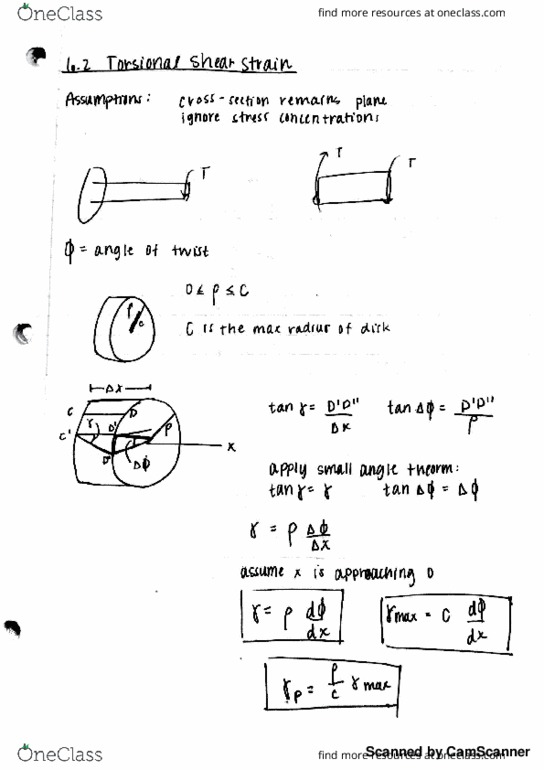 OneClass
find more resources at oneclass.com
6.2 Torsional Shear Strain
Assumptions: cross-section remains plane
ignore stress concentrations
T
T T
ϕ = angle of twist
0 ≤ ρ ≤ C
ρ c
C is the max radius of disk
Δx
C D
C' γ D' ρ
D" Δϕ
x
tan γ = D'D" / Δx tan Δϕ = D'D" / ρ
apply small angle theorm:
tan γ = γ tan Δϕ = Δϕ
γ = ρ Δϕ / Δx
assume x is approaching 0
γ = ρ dϕ / dx γmax = C dϕ / dx
γρ = ρ / c γmax
OneClass
find more resources at oneclass.com
Scanned by CamScanner